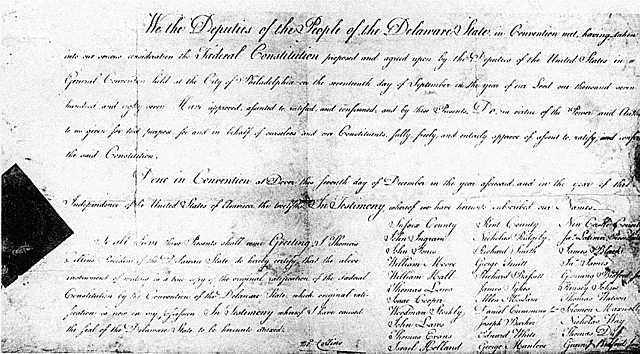 We the Deputies of the People of the Delaware State, in Convention met, having taken
into our serious consideration the Federal Constitution proposed and agreed upon by the Deputies of the United States in a
General Convention held at the City of Philadelphia on the seventeenth day of September in the year of our Lord one thousand seven
hundred and eighty seven Have approved, assented to, ratified, and confirmed, and by these Presents, Do, in virtue of the Power and
to us given for that purpose for and in behalf of ourselves and our Constituents, fully, freely, and entirely approve of, assent to, ratify, and
the said Constitution.
Done in Convention at Dover this seventh day of December in the year aforesaid, and in the year of the
Independence of the United States of America the twelfth. In Testimony whereof we have hereunto subscribed our Names.
To all whom these Presents shall come Greeting, I Thomas
Collins President of the Delaware State do hereby certify, that the above
instrument of writing is a true copy of the original ratification of the Federal
Constitution by the Convention of the Delaware State, which original rati-
fication is now in my possession. In Testimony whereof I have caused
the seal of the Delaware State to be hereunto annexed.
Tho Collins
Sussex County
John Ingram
John Jones
William Moore
William Hall
Thomas Laws
Isaac Cooper
Woodman Stockly
John Laws
Thomas Evans
Israel Holland
Kent County
Nicholas Ridgely
Richard Smith
George Truitt
Richard Bassett
James Sykes
Allen McLane
Daniel Cummins
Joseph Barker
Edward White
George Manlove
New Castle County
James Black
Gunning Bedford
Kensey Johns
Thomas Watson
Solomon Maxwell
Nicholas Way
Thomas Duff